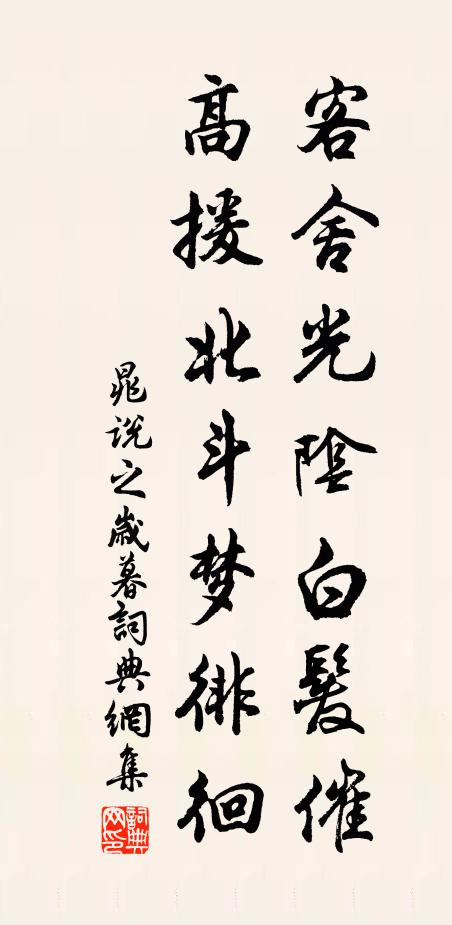 客舍光陰白髮催
高援北斗梦徘徊
晁说之歲暮詞典網集
詞典网印